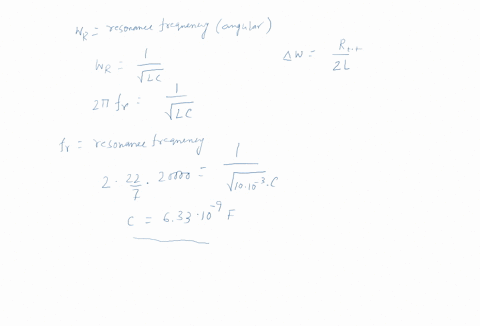 W_R = resonance frequency (angular)
W_R = 1/√LC
ΔW = R_tot/2L
2π f_r = 1/√LC
f_r = resonance frequency
2 · 22/7 · 20000 = 1/√10·10^-3·C
C = 6.33·10^-9 F